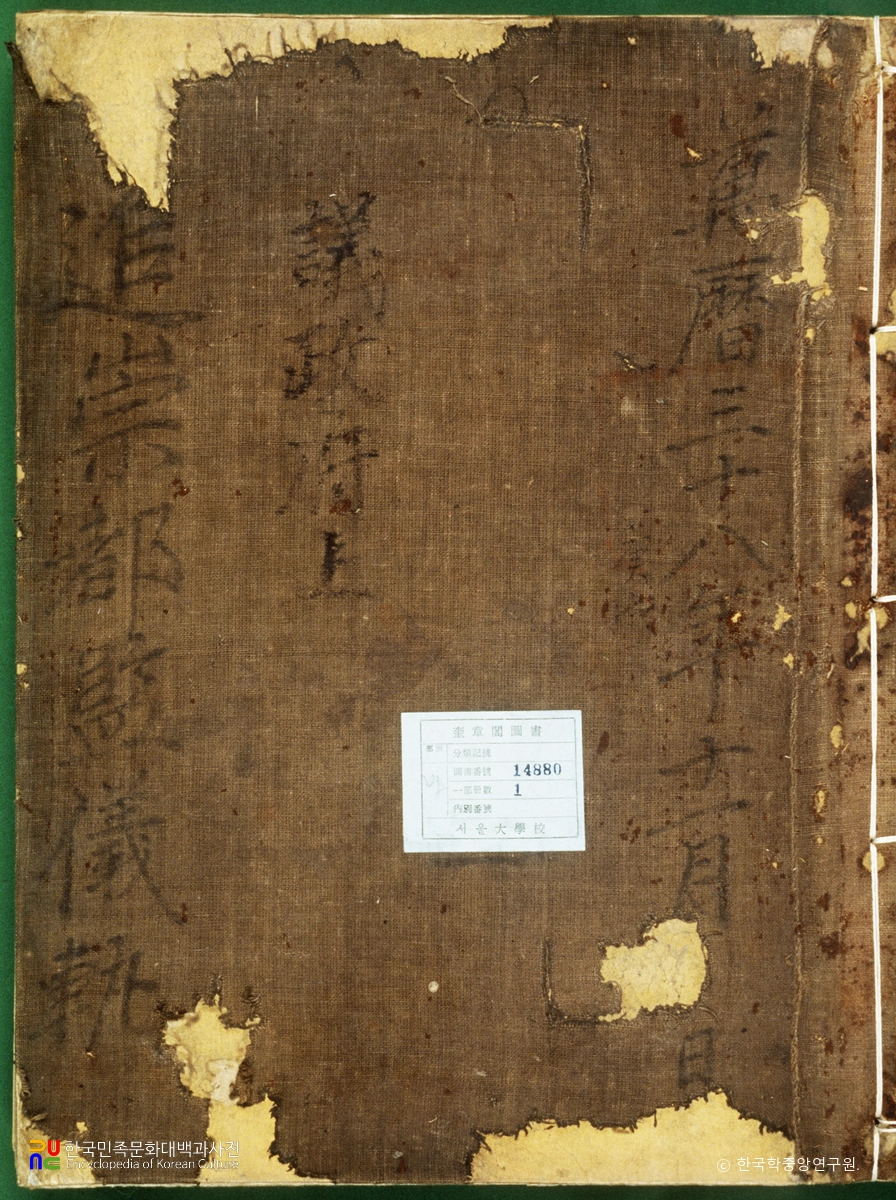 萬曆三十八年十一月 日
議政府上
追崇都監儀軌
奎章閣圖書
分類記號
圖書番號 14880
一部冊數 1
內別番號
서울大學校
한국민족문화대백과사전
Encyclopedia of Korean Culture
© 한국학중앙연구원.